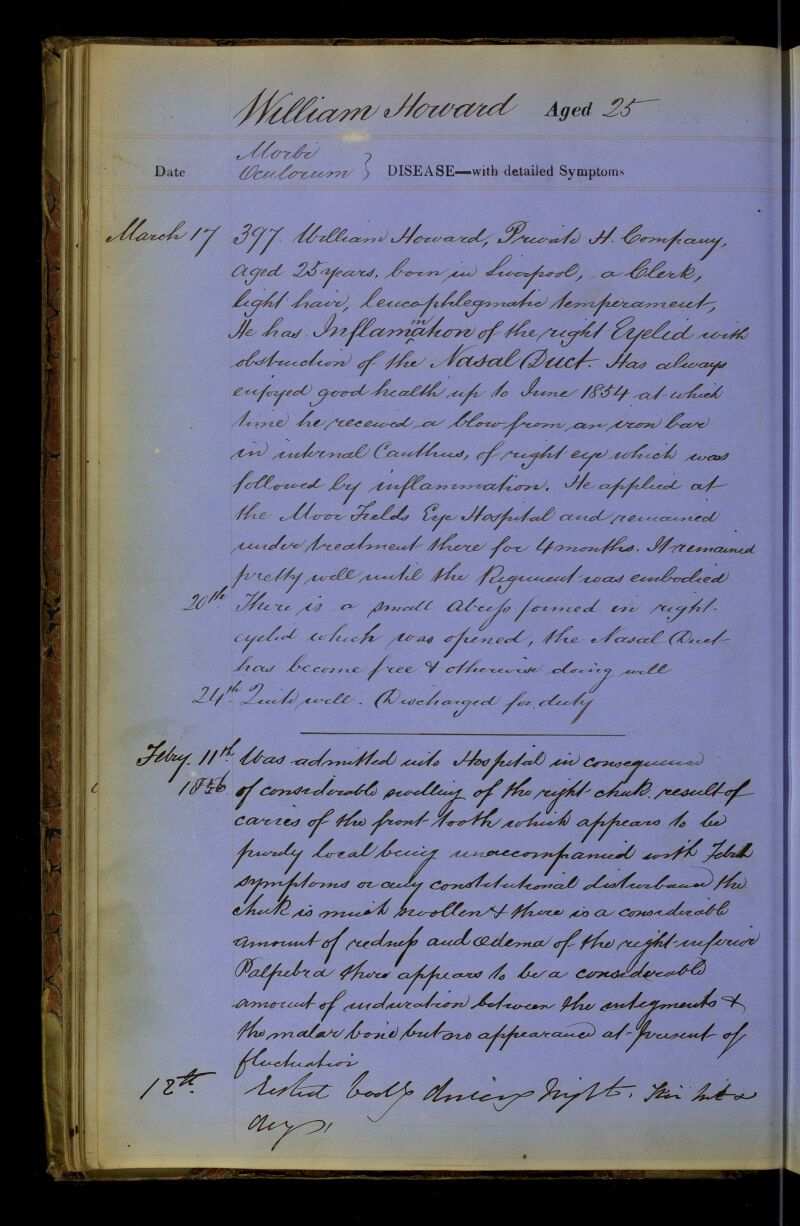 William Howard Aged 25
Morbi
Oculorum } DISEASE—with detailed Symptoms
Date
March 17 397. William Howard, Private H. Company,
aged 25 years, born in Liverpool, a Clerk,
light hair, leucophlegmatic temperament,
He has Inflammation of the right Eyelid with
obstruction of the Nasal Duct. Has always
enjoyed good health up to June 1854 at which
time he received a blow from an iron bar
in internal Canthus, of right eye which was
followed by inflammation. He applied at
the Moor Fields Eye Hospital and remained
under treatment there for 4 months. It remained
pretty well until the Regiment was embodied
20th. There is a small Abcess formed in right
eyelid which was opened, the Nasal Duct
has become free & otherwise doing well
24th. Quite well. Discharged for duty
Feby. 11th. Was admitted into Hospital in consequence
1856 of considerable swelling of the right cheek. result of
caries of the front tooth which appears to be
purely local being unaccompanied with Febrile
symptoms or any constitutional disturbance the
cheek is much swollen & there is a considerable
amount of redness and œdema of the right inferior
Palpebra there appears to be a considerable
amount of induration between the integments &
the malar bone but no appearance at present of
fluctuation
12th. Rested badly during night. Skin hot &
dry.